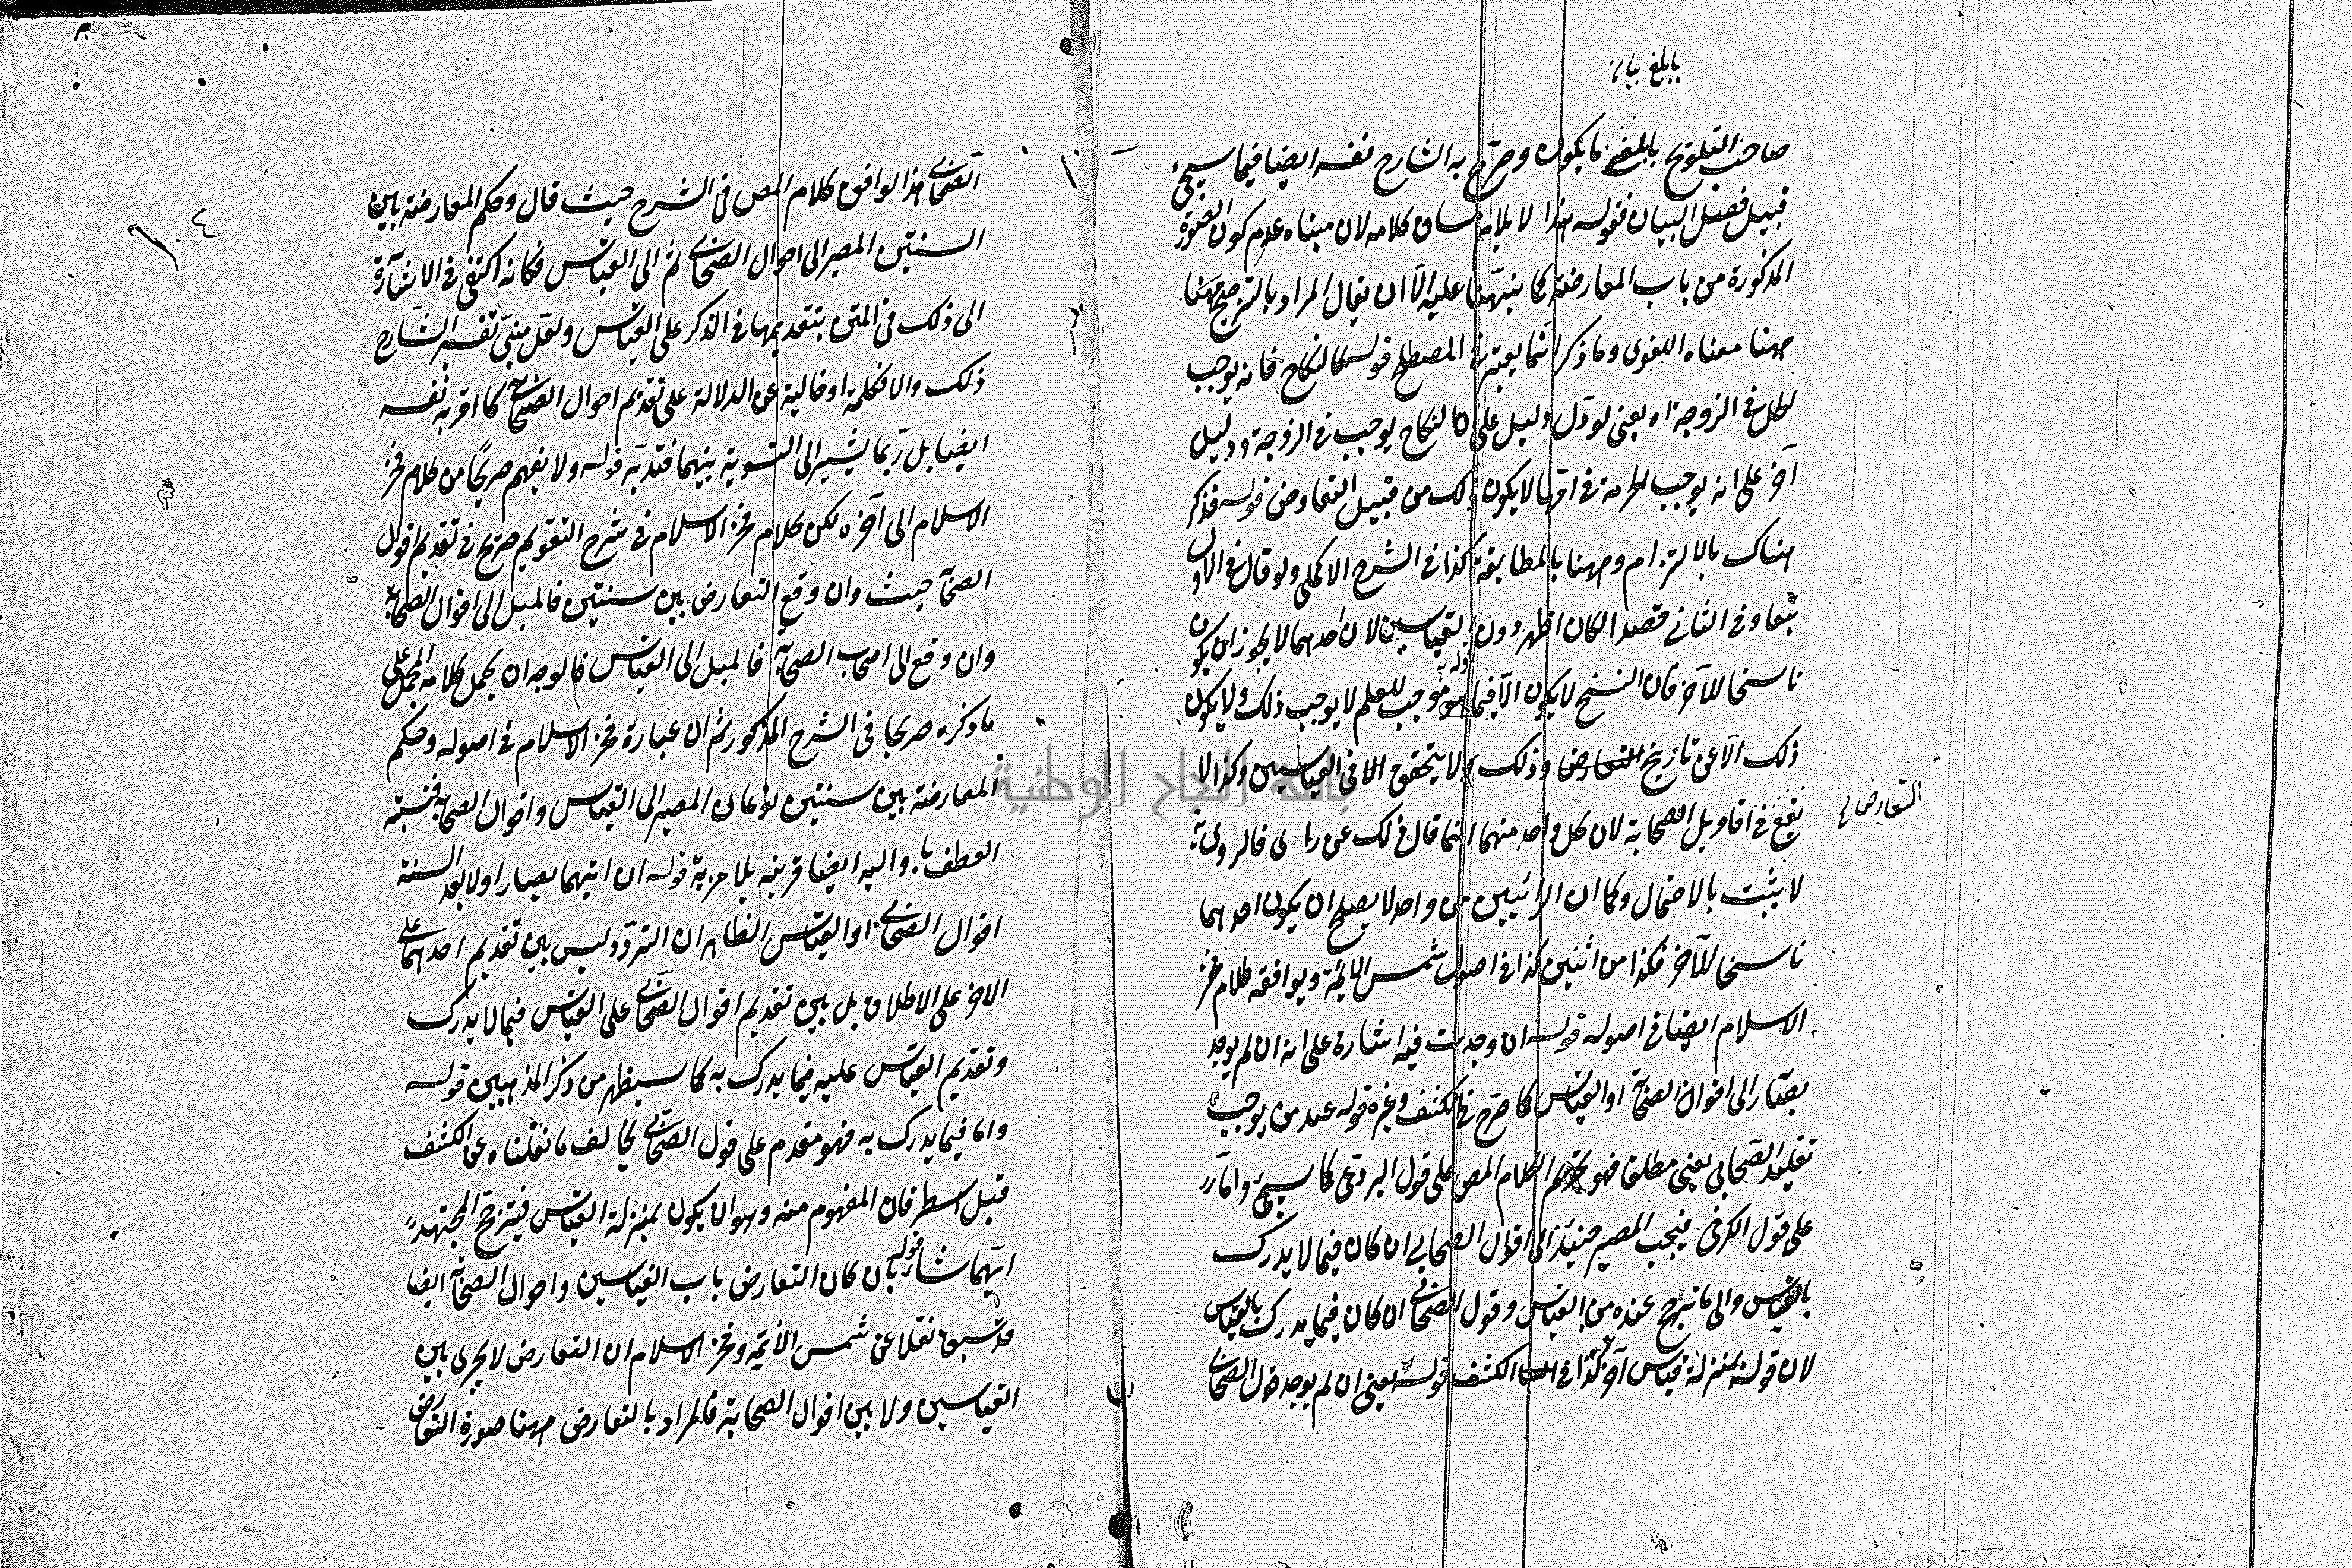 بابلغ بيان
صاحب التلويح بابلغ ما يكون وصرّح به الشارح نفسه ايضا فيما سيجئ
قبيل فصل البيان فقوله هذا لا يلايم مساق كلامه لان مبناه عدم كون الصورة
المذكورة من باب المعارضة كما ينبهنا عليه الّا ان يقال المراد بالترجيح ههنا
ههنا معناه اللغوى وما ذكر انما يعتبر فى المصطلح قوله كالنكاح فانه يوجب
الحل فى الزوجة اه يعنى لو دلّ دليل على ان النكاح يوجب فى الزوجة ودليل
آخر على انه يوجب الحرمة فى امّها لا يكون ذلك من قبيل التعارض قوله فذكر
هناك بالالتزام وههنا بالمطابقة كذا فى الشرح الاكملى ولو قال فى الاول
تبعا وفى الثانى قصدا لكان اظهر دون القياسين لان احدهما لا يجوز ان يكون
ناسخا للآخر فان النسخ لا يكون الّا فيما هو موجب للعلم لا يوجب ذلك ولا يكون
ذلك الّا عن تاريخ وذلك لا يتحقق الا فى القياسين وكذا لا
التعارض
يقع فى اقاويل الصحابة لان كل واحد منهما انما قال ذلك عن راى فالرواية
لا يثبت بالاحتمال وكما ان الرائيين من واحد لا يصلح ان يكون احدهما
ناسخا للآخر فكذا من اثنين كذا فى اصول شمس الايمّة ويوافقه كلام فخر
الاسلام ايضا فى اصوله قوله ان وجدت فيه اشارة على انه ان لم يوجد
يصار الى اقوال الصحابة او القياس كما صرّح فى الكشف وغيره قوله عند من يوجب
تقليد الصحابى يعنى مطلقا فهو الكلام المص على قول البردعى كما سيجئ وامّا
على قول الكرخى فيجب المصير حينئذ الى اقوال الصحابى ان كان فيما لا يدرك
بالقياس والى ما يترجح عنده من القياس وقول الصحابى ان كان فيما يدرك بالقياس
لان قوله بمنزلة قياس آخر كذا فى الكشف قوله يعنى ان لم يوجد قول الصحابى
الصحابى هذا لوافق كلام المص فى الشرح حيث قال وحكم المعارضة بين
السنتين المصير الى اقوال الصحابى ثم الى القياس فكانه اكتفى فى الاشارة
الى ذلك فى المتن بتقديمها فى الذكر على القياس ولعل مبنى تفسير الشارح
ذلك والا فكلمة او خالية عن الدلالة على تقديم اقوال الصحابة كما اقر به نفسه
ايضا بل ربّما يشير الى التسوية بينهما فتدبّر قوله ولا يفهم صريحًا من كلام فخر
الاسلام الى آخره لكن كلام فخر الاسلام فى شرح التقويم صريح فى تقديم اقوال
الصحابة حيث وان وقع التعارض بين سنتين فالميل الى اقوال الصحابة
وان وقع الى اصحاب الصحابة فالميل الى القياس فالوجه ان يحمل كلامه المجمل على
ما ذكره صريحا فى الشرح المذكور ثم ان عبارة فخر الاسلام فى اصوله وحكم
المعارضة بين سنتين نوعان المصير الى القياس واقوال الصحابة فنسبته
العطف واليه ايضا قريبة بلا مزية قوله ان ايهما يصار اولا بعد السنة
اقوال الصحابى او القياس الظاهر ان التردّد ليس بين تقديم احدهما على
الاخر على الاطلاق بل بين تقديم اقوال الصحابى على القياس فيما لا يدرك
وتقديم القياس عليه فيما يدرك به كما سيظهر من ذكر المذهبين قوله
واما فيما يدرك به فهو مقدم على قول الصحابى يخالف ما نقلناه عن الكشف
قبل اسطر فان المفهوم منه وهو ان يكون بمنزلة القياس فيترجح المجتهد
ايّهما شاء قوله بان كان التعارض باب القياسين واقوال الصحابة ايضا
قد سبق نقلا عن شمس الائمّة وفخر الاسلام ان التعارض لا يجرى بين
القياسين ولا بين اقوال الصحابة فالمراد بالتعارض ههنا صورة التعارض
١٠٤
جامعة النجاح الوطنية